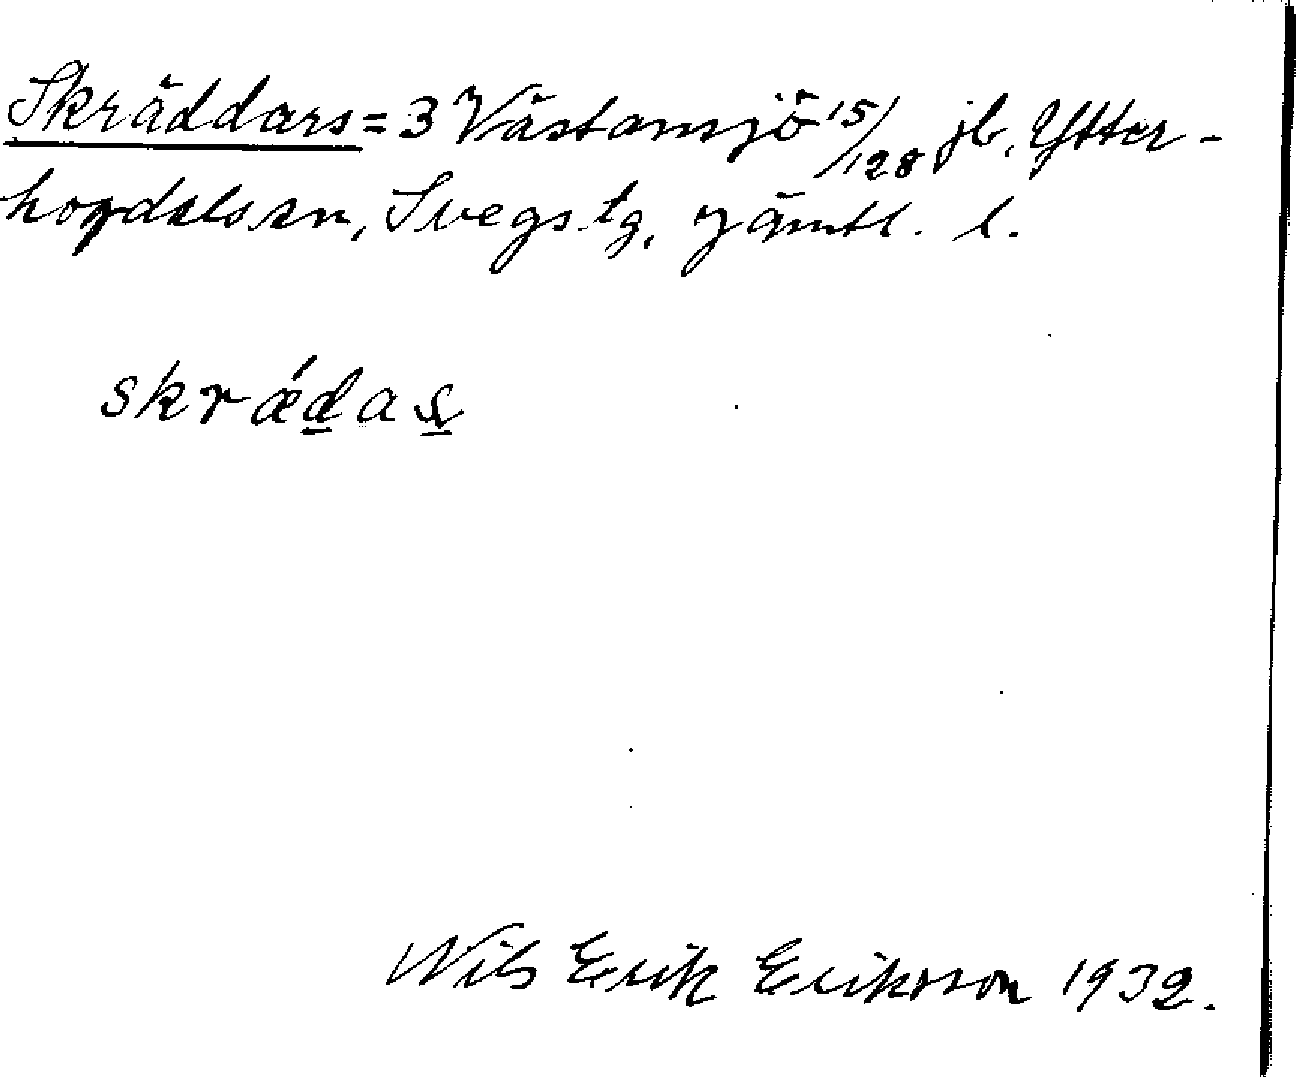 Skräddars = 3 Västansjö 15/128 jb, Ytter-
hogdals sn, Svegs tg, Jämtl. l.
skrǽdas
Nils Erik Eriksson 1932.